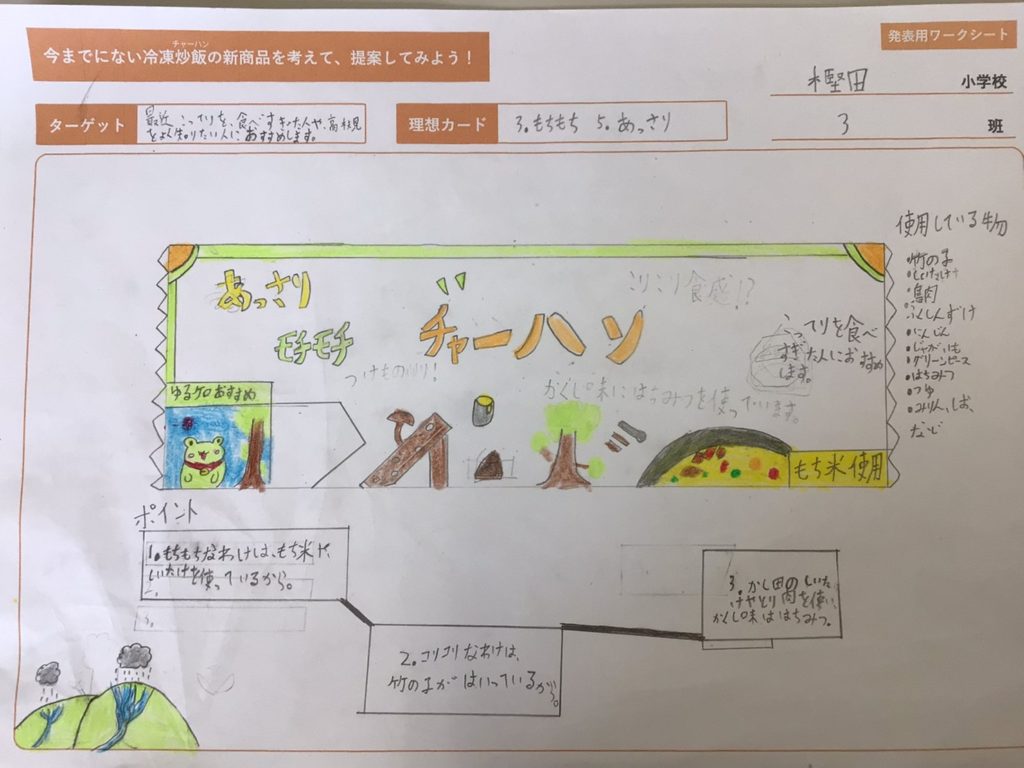 チャーハン
今までにない冷凍炒飯の新商品を考えて、提案してみよう！
発表用ワークシート
樫田 小学校
ターゲット
最近こってりを、食べすぎた人や、高槻見
をよく知りたい人におすすめします。
理想カード
3.もちもち 5.あっさり
3 班
あっさり
モチモチ
チャーハン
コリコリ食感!?
つけもの入り！
かくし味にはちみつを使っています。
こってりを食べ
すぎた人におすすめ
します。
ゆるケロおすすめ
もち米使用
使用している物
・竹の子
・しいたけ
・鳥肉
・ふくしんずけ
・にんじん
・じゃがいも
・グリーンピース
・はちみつ
・つゆ
・みりん、しお、
など
ポイント
1.もちもちなわけは、もち米や
しいたけを使っているから。
2.コリコリなわけは、
竹の子がはいっているから。
3.かし田のしいた
けやとり肉を使い、
かくし味ははちみつ。
3.